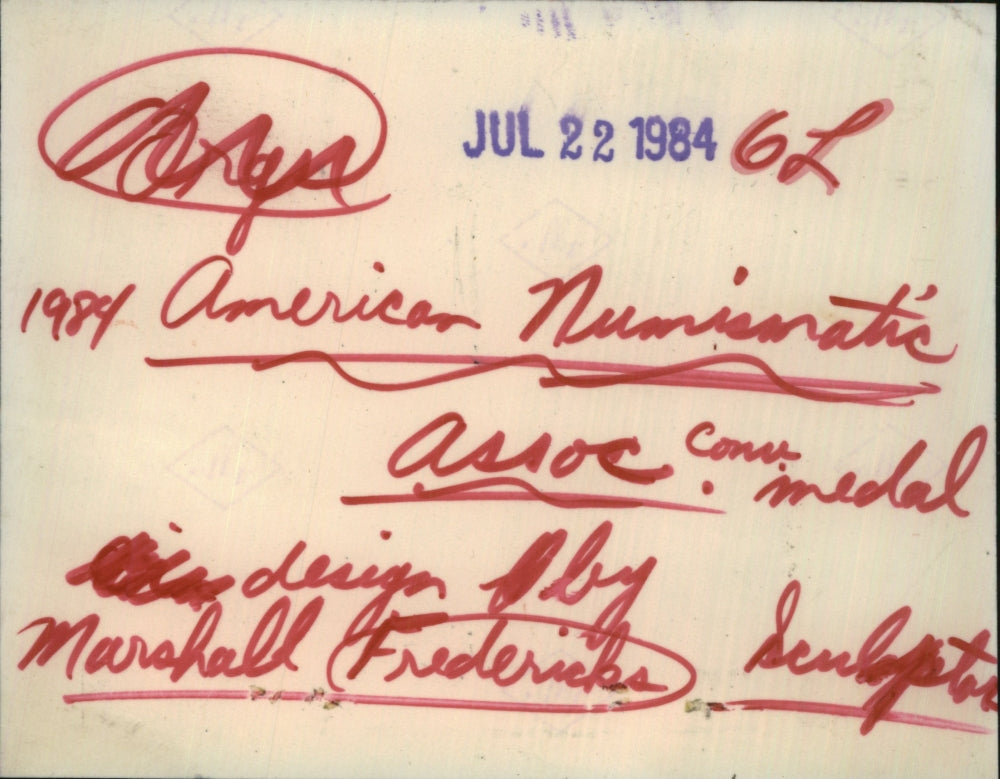 Orgs
JUL 22 1984 GL
1984 American Numismatic
Assoc. Conv.
medal
design by
Marshall Fredericks Sculptor